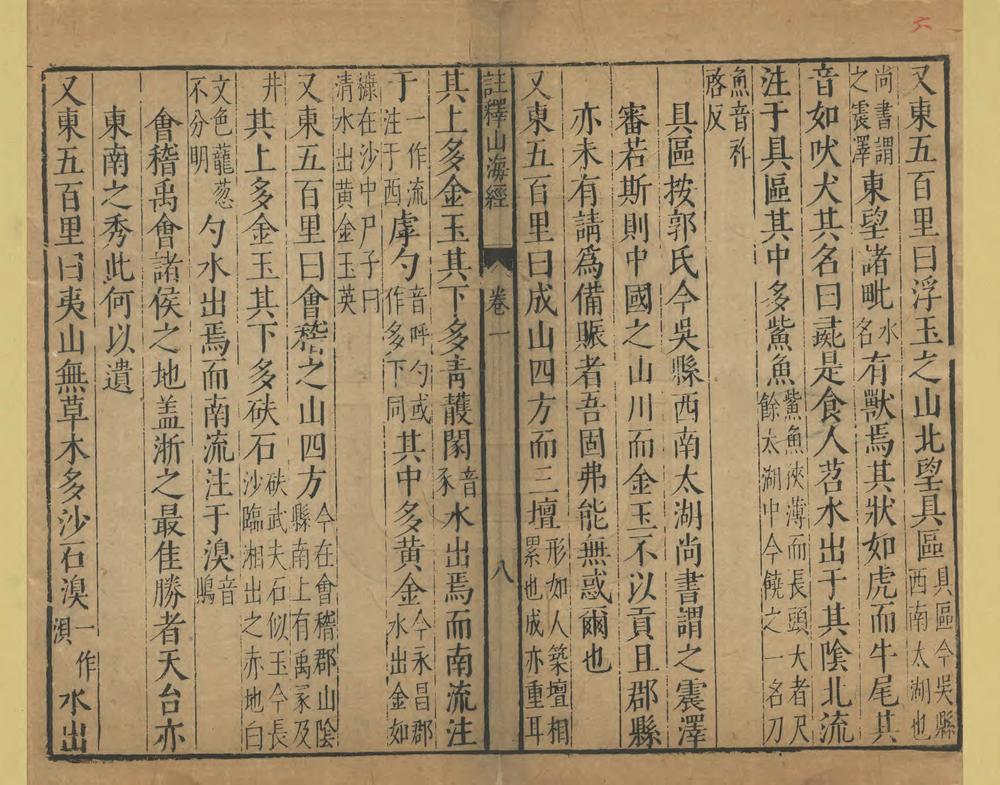 又東五百里曰浮玉之山北望具區具區今吳縣西南太湖也
尚書謂之震澤東望諸毗水名有獸焉其狀如虎而牛尾其
音如吠犬其名曰彘是食人苕水出于其陰北流
注于具區其中多鮆魚鮆魚狹薄而長頭大者尺餘太湖中今饒之一名刀
魚音祚啓反
具區按郭氏今吳縣西南太湖尚書謂之震澤
審若斯則中國之山川而金玉不以貢且郡縣
亦未有請爲備賑者吾固弗能無惑爾也
又東五百里曰成山四方而三壇形如人築壇相累也成亦重耳
註釋山海經 卷一 八
其上多金玉其下多青雘閡音豕水出焉而南流注
于一作流注于西虖勺音呼勺或作多下同其中多黃金今永昌郡水出金如
糠在沙中尸子曰清水出黃金玉英
又東五百里曰會稽之山四方今在會稽郡山陰縣南上有禹冢及
井其上多金玉其下多砆石砆武夫石似玉今長沙臨湘出之赤地白
文色龍葱不分明勺水出焉而南流注于湨音鵙
會稽禹會諸侯之地盖浙之最佳勝者天台亦
東南之秀此何以遺
又東五百里曰夷山無草木多沙石湨一作浿水出